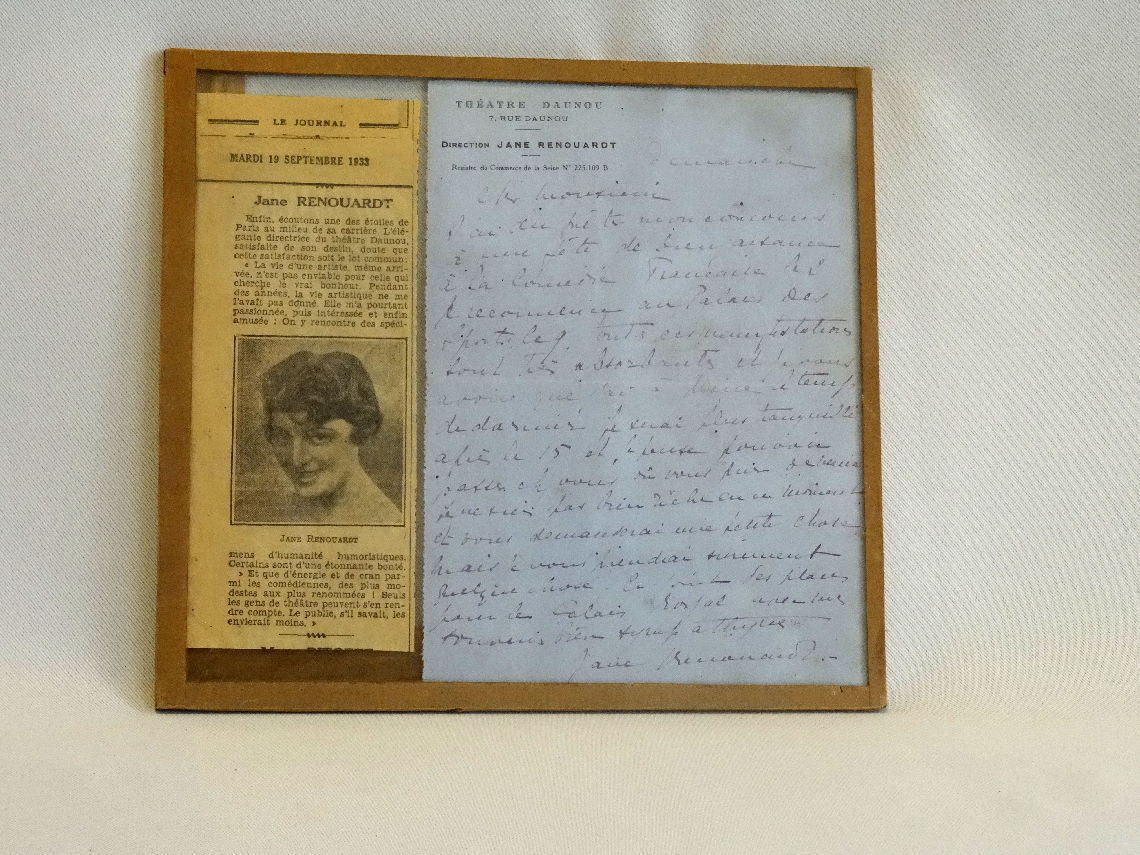 LE JOURNAL
MARDI 19 SEPTEMBRE 1933
Jane RENOUARDT
Enfin, écoutons une des étoiles de
Paris au milieu de sa carrière. L'élé-
gante directrice du théâtre Daunou,
satisfaite de son destin, doute que
cette satisfaction soit le lot commun:
« La vie d'une artiste, même arri-
vée, n'est pas enviable pour celle qui
cherche le vrai bonheur. Pendant
des années, la vie artistique ne me
l'avait pas donné. Elle m'a pourtant
passionnée, puis intéressée et enfin
amusée : On y rencontre des spéci-
JANE RENOUARDT
mens d'humanité humoristiques.
Certains sont d'une étonnante bonté.
» Et que d'énergie et de cran par-
mi les comédiennes, des plus mo-
destes aux plus renommées ! Seuls
les gens de théâtre peuvent s'en ren-
dre compte. Le public, s'il savait, les
envierait moins. »
THÉATRE DAUNOU
7, RUE DAUNOU
DIRECTION JANE RENOUARDT
Registre du Commerce de la Seine N° 225.109 B
Dimanche
Cher Monsieur
J'ai prêté mon concours
à une fête de bienfaisance
à la Comédie Française hier
je recommence au Palais des
Sports le 9 toutes ces manifestations
sont très absorbantes et
temps
de dormir je serai plus tranquille
après le 15 et pense pouvoir
passer ch vous où vous
pas bien riche en ce moment
et vous demanderai une petite chose
mais vous prendrai sûrement
quelque chose. des places
pour le Palais Royal avec mes
souvenirs bien sympathiques
Jane Renouardt